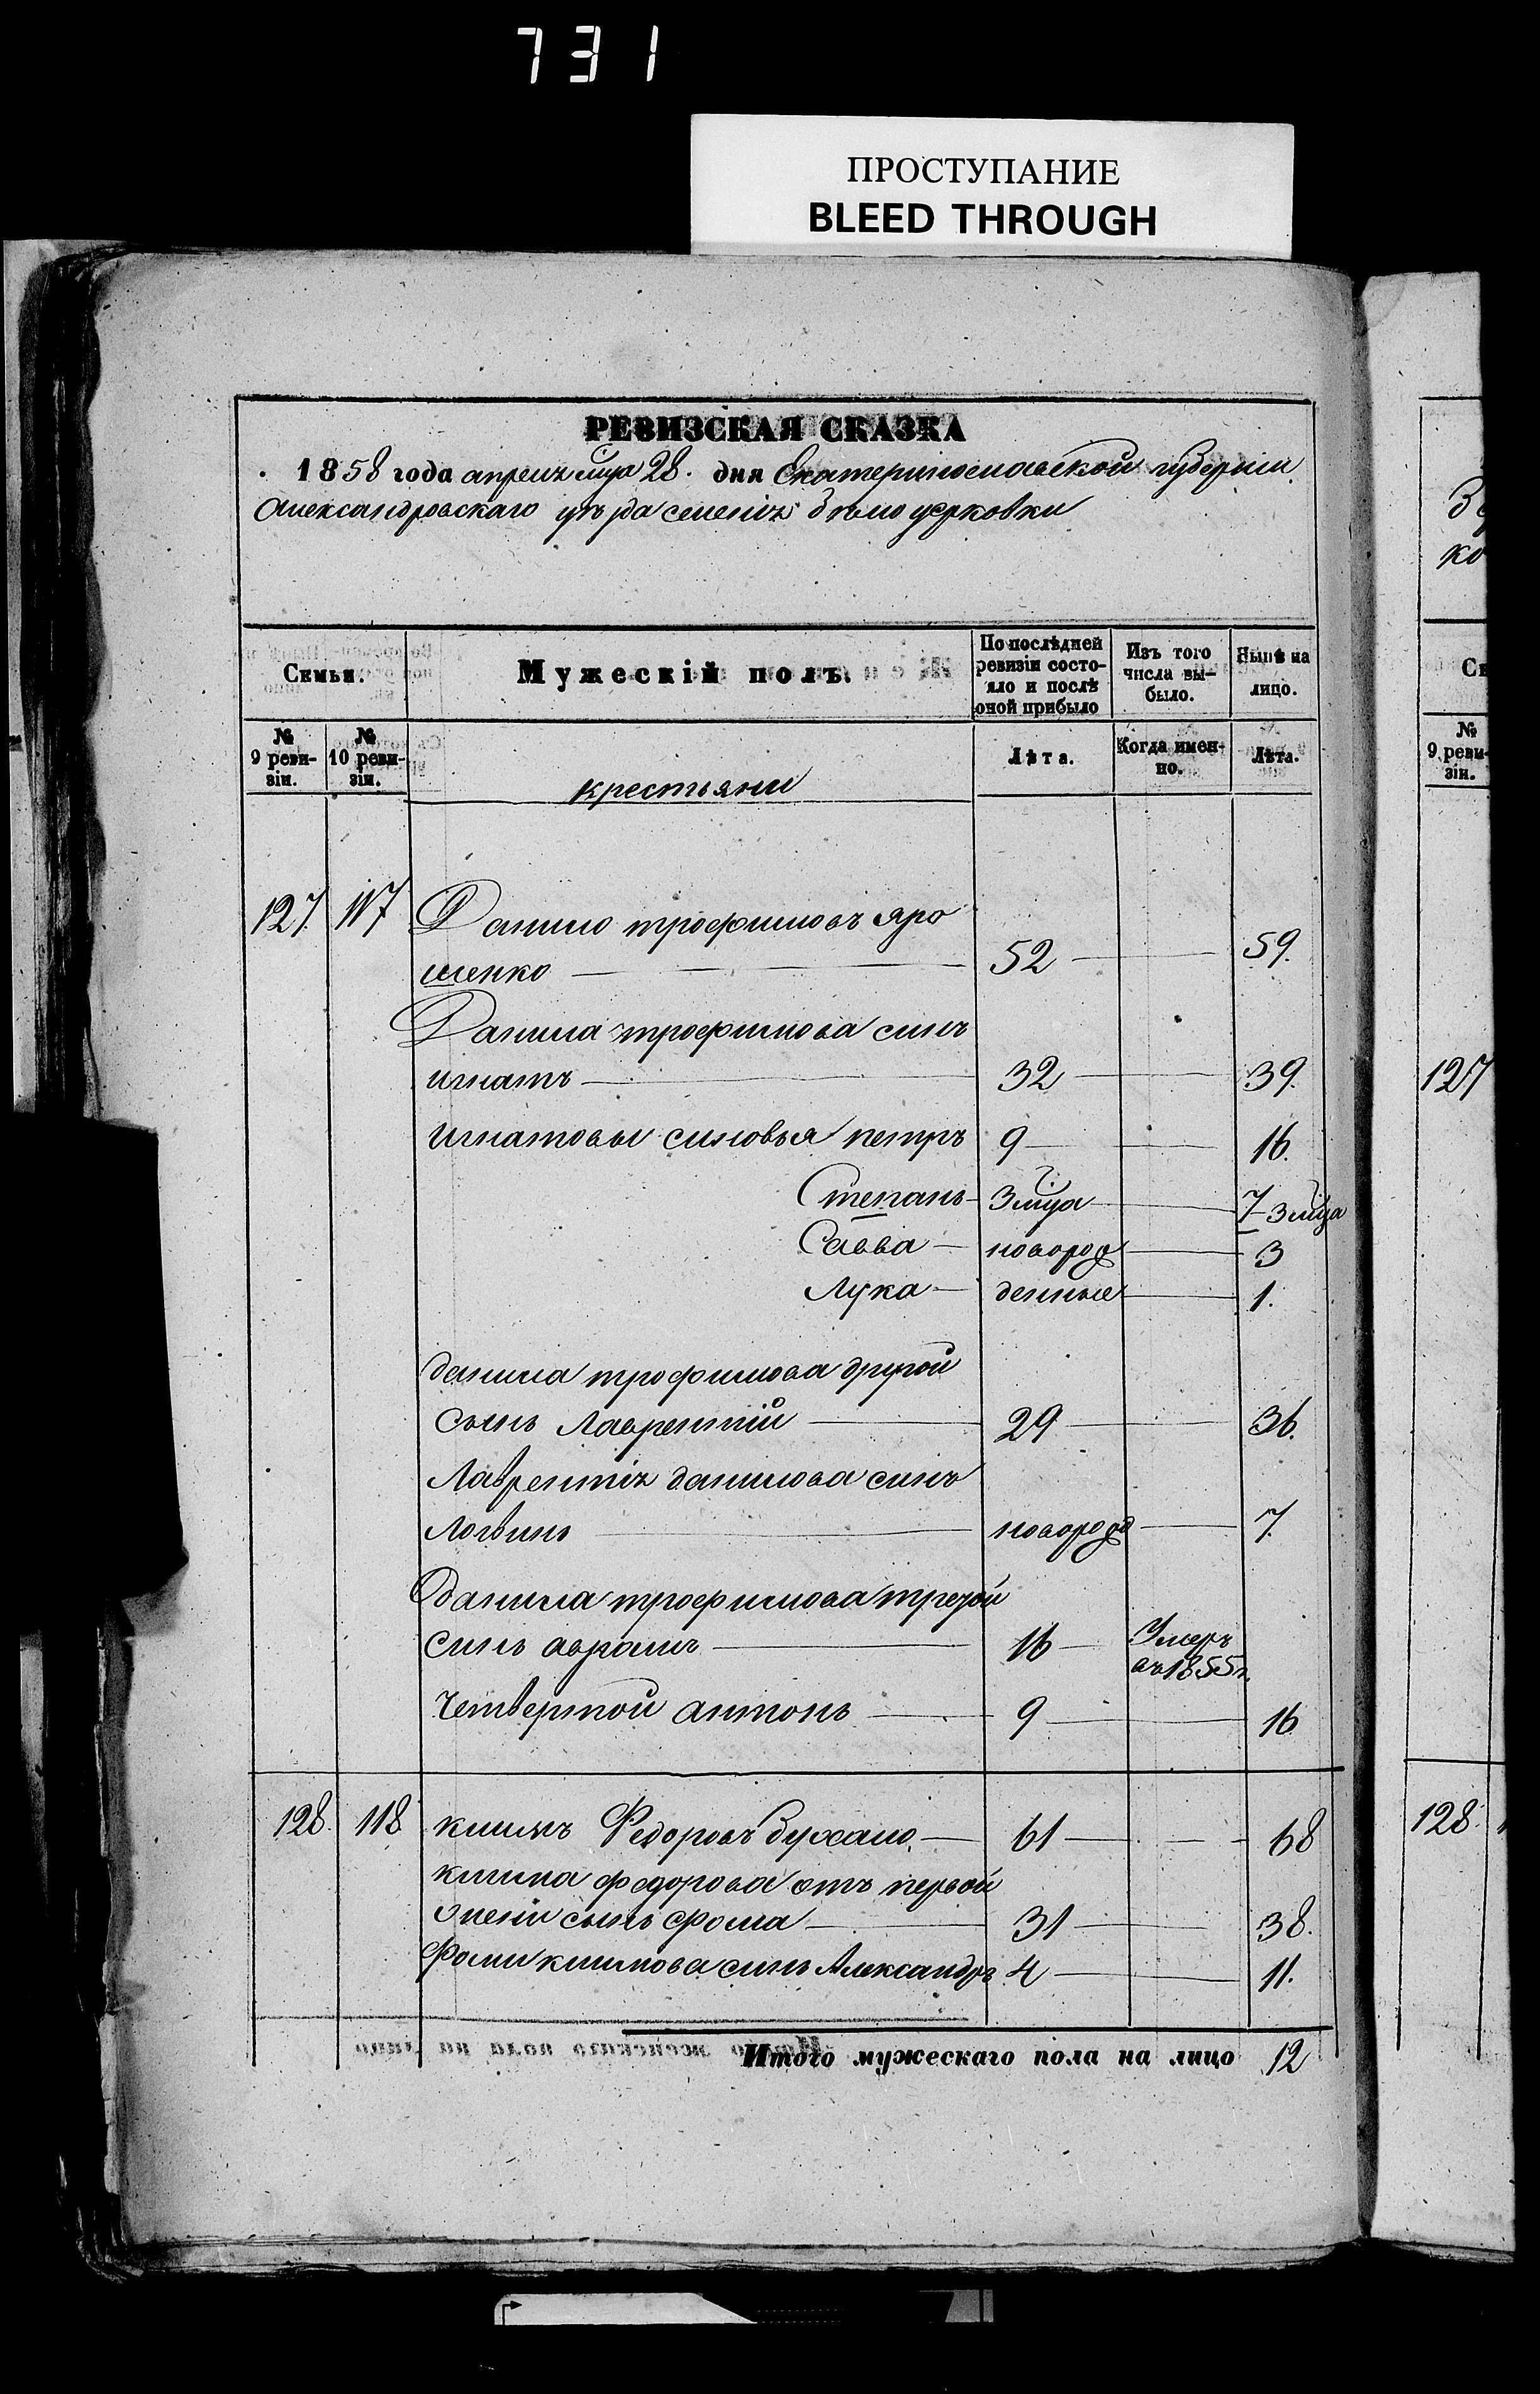 731
ПРОСТУПАНИЕ
BLEED THROUGH
РЕВИЗСКАЯ СКАЗКА
1858 года апреля мца 28. дня Екатеринославской губернии
Александровскаго уѣзда селенія бѣлоцерковки
Семьи.
Мужескій полъ.
По послѣдней ревизіи состояло и послѣ оной прибыло
Изъ того числа выбыло.
Нынѣ на лицо.
№ 9 ревизіи.
№ 10 ревизіи.
крестьяни
Лѣта.
Когда именно.
Лѣта.
127. 117 Данило трофимовъ яро
шенко 52 59.
Данила трофимова синъ
игнатъ 32 39.
игнатовы синовья петръ 9 16.
Степанъ 3 мца 7 3 мца
Савва новорож 3
Лука денные 1.
данила трофимова другой
сынъ Лаврентій 29 36.
Лаврентія данилова синъ
Логвинъ новорожд 7.
данила трофимова третой
синъ аврамъ 16 Умеръ
въ 1855 г.
Четвертой антонъ 9 16
128. 118 климъ Федоровъ Бухало 61 68
клима федорова отъ первой
жени сынъ фома 31 38.
Фоми климова синъ Александръ 4 11.
Итого мужескаго пола на лицо 12
№
9 реви-
зіи.
127
128.